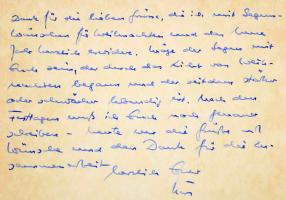 Dank für die lieben Grüße, die ich mit Segens-
wünschen für Weihnachten und das neue
Jahr herzlich erwidere. Möge der Segen mit
Euch sein, der durch das Licht von Weih-
nachten begann und der seitdem stärker
oder schwächer lebendig ist. Nach den
Festtagen muß ich Euch noch genauer
schreiben - heute nur die Grüße und
Wünsche und den Dank für die Zu-
sammenarbeit herzlich Euer